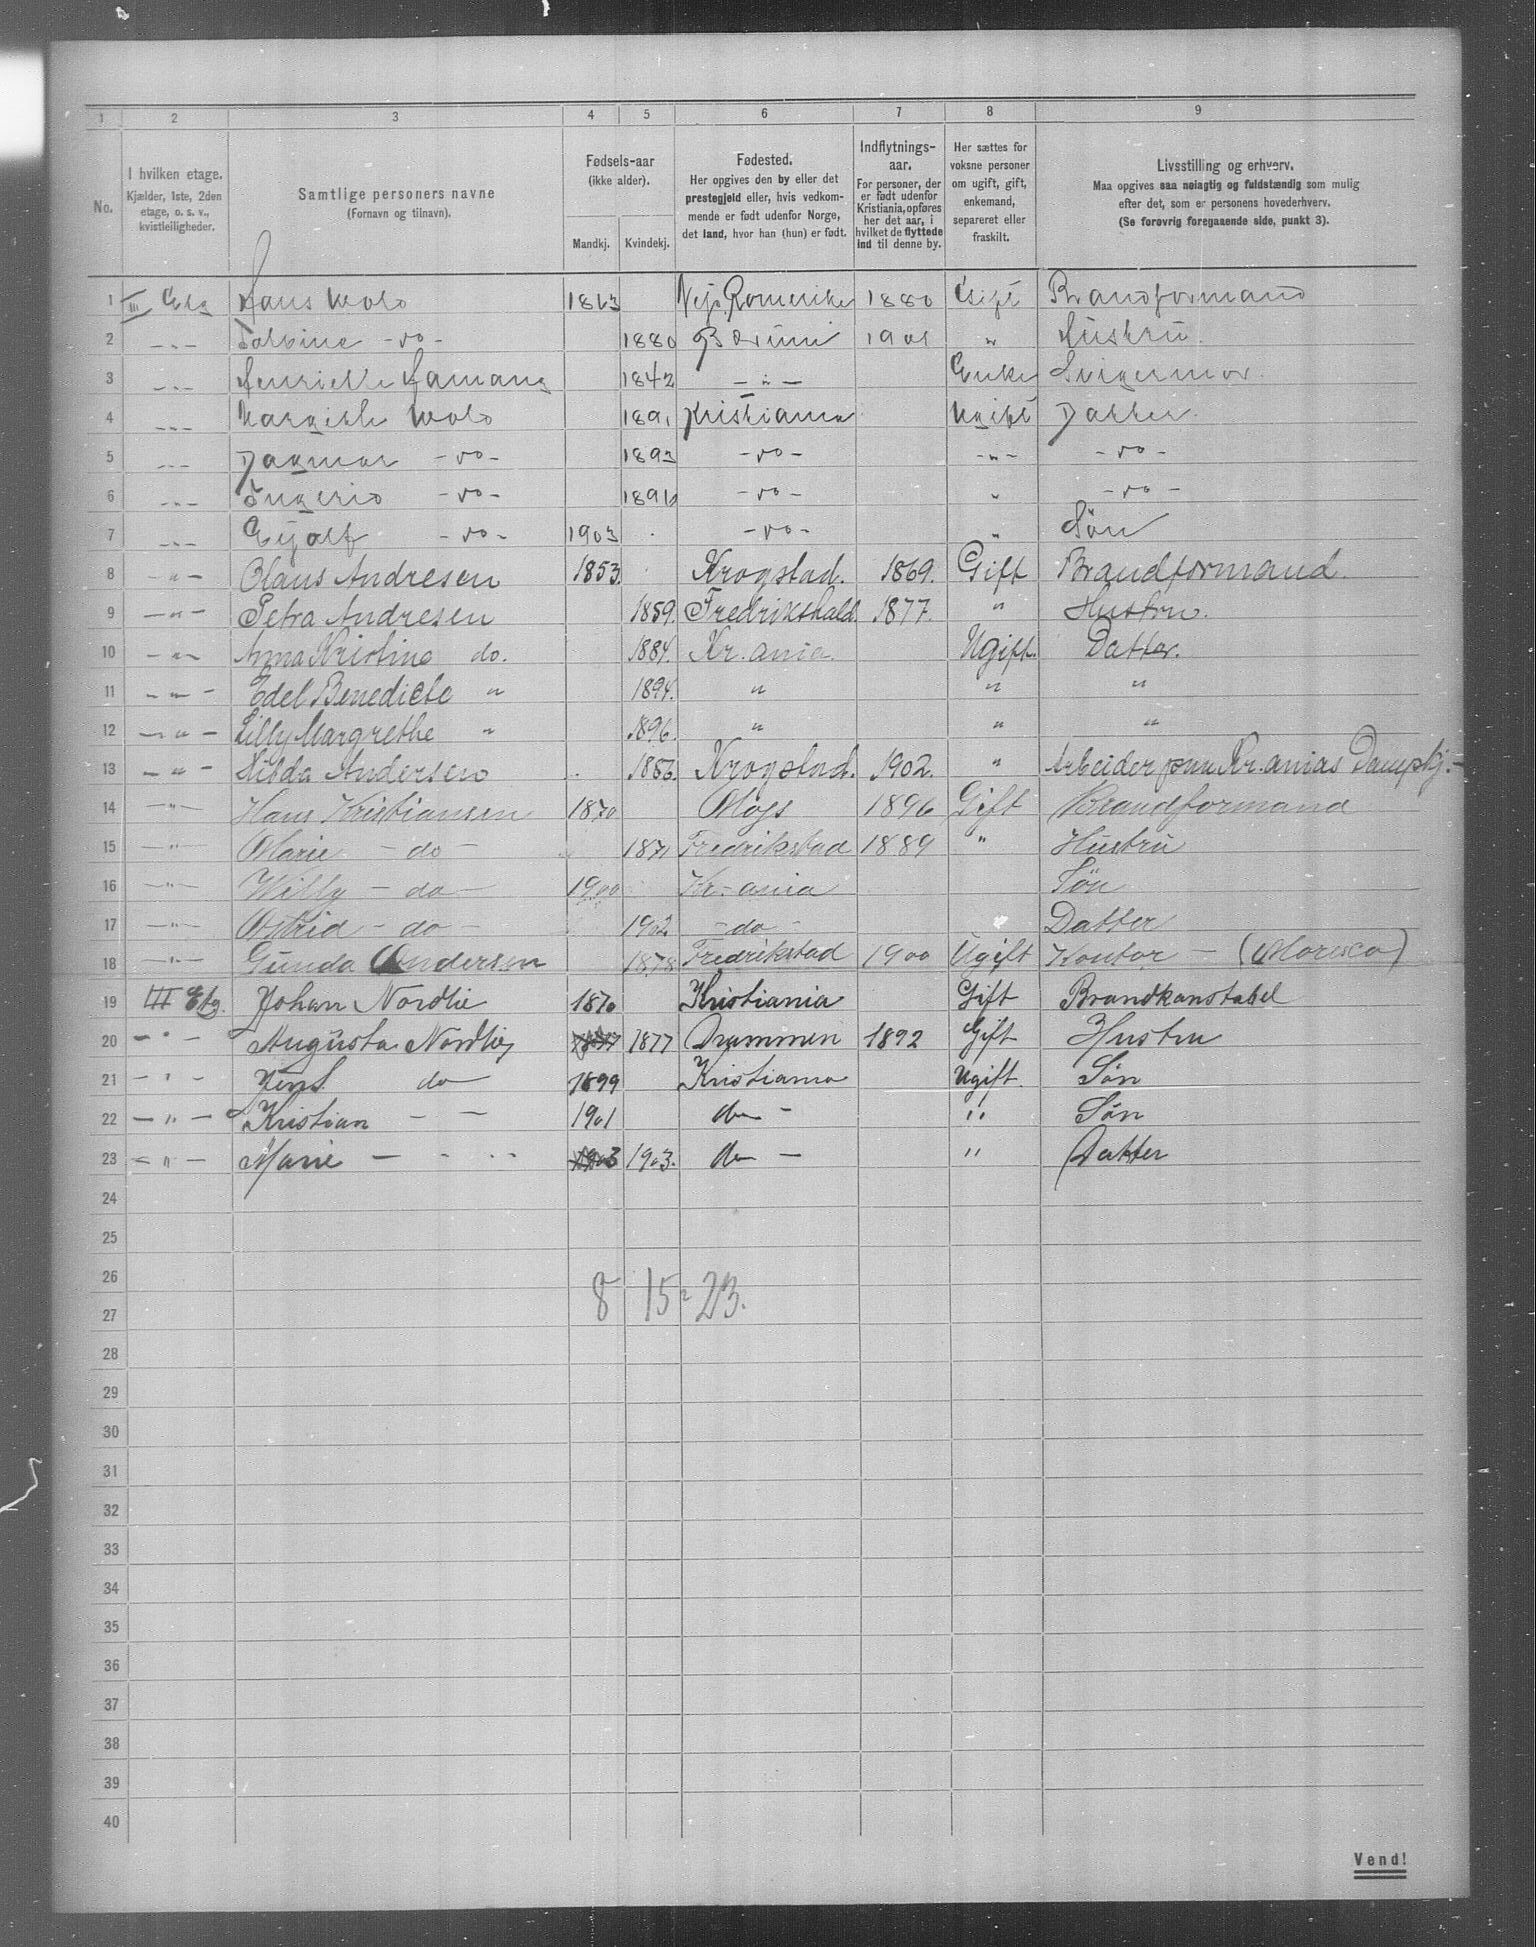 1 2 3 4 5 6 7 8 9
No.
I hvilken etage.
Kjælder, 1ste, 2den
etage, o. s. v.,
kvistleiligheder.
Samtlige personers navne
(Fornavn og tilnavn).
Fødsels-aar
(ikke alder).
Mandkj. Kvindekj.
Fødested.
Her opgives den by eller det
prestegjeld eller, hvis vedkom-
mende er født udenfor Norge,
det land, hvor han (hun) er født.
Indflytnings-
aar.
For personer, der
er født udenfor
Kristiania, opføres
her det aar, i
hvilket de flyttede
ind til denne by.
Her sættes for
voksne personer
om ugift, gift,
enkemand,
separeret eller
fraskilt.
Livsstilling og erhverv.
Maa opgives saa nøiagtig og fuldstændig som mulig
efter det, som er personens hovederhverv.
(Se forøvrig foregaaende side, punkt 3).
1 III Etg Hans Wold 1863 Romerike 1880 Gift Brandformand
2 -„- -do- 1880 Bærum 1901 „ Hustru.
3 -„- Henriette Hamang 1842 -„- Enke Svigermor.
4 -„- Margithe Wold 1891 Kristiania Ugift Datter.
5 -„- Dagmar -do- 1893 -do- -„- -do-
6 -„- Ingerid -do- 1896 -do- „ -do-
7 -„- Eijolf -do- 1903 -do- „ Søn
8 -„- Olaus Andresen 1853. Krogstad. 1869. Gift Brandformand.
9 -„- Petra Andresen 1859. Fredrikshald. 1877. „ Hustru.
10 -„- Anna Kristine do. 1884. Kr.ania. Ugift. Datter.
11 -„- Edel Benedicte „ 1894. „ „ „
12 -„- Lilly Margrethe „ 1896. „ „ „
13 -„- Hilda Andersen 1886. Krogstad. 1902. „ Arbeider paa Kr.anias Dampkj.-
14 -„- Hans Kristiansen 1870 Moss 1896 Gift Brandformand
15 -„- Marie -do- 1871 Fredrikstad 1889 „ Hustru
16 -„- Willy -do- 1900 Kr-ania Søn
17 -„- Astrid -do- 1902 -do- Datter
18 -„- Gunda Andersen 1878 Fredrikstad 1900 Ugift Kontor - (Moresco)
19 III Etg. Johan Nordlie 1870 Kristiania Gift Brandkonstabel
20 -„- Augusta Nordlie 1877 1877 Drammen 1892 Gift Hustru
21 -„- Jens do 1899 Kristiania Ugift. Søn
22 -„- Kristian - - 1901 do - „ Søn
23 -„- Marie - - - 1903 1903. do - „ Datter
24
25
26
8 15 = 23.
27
28
29
30
31
32
33
34
35
36
37
38
39
40
Vend!